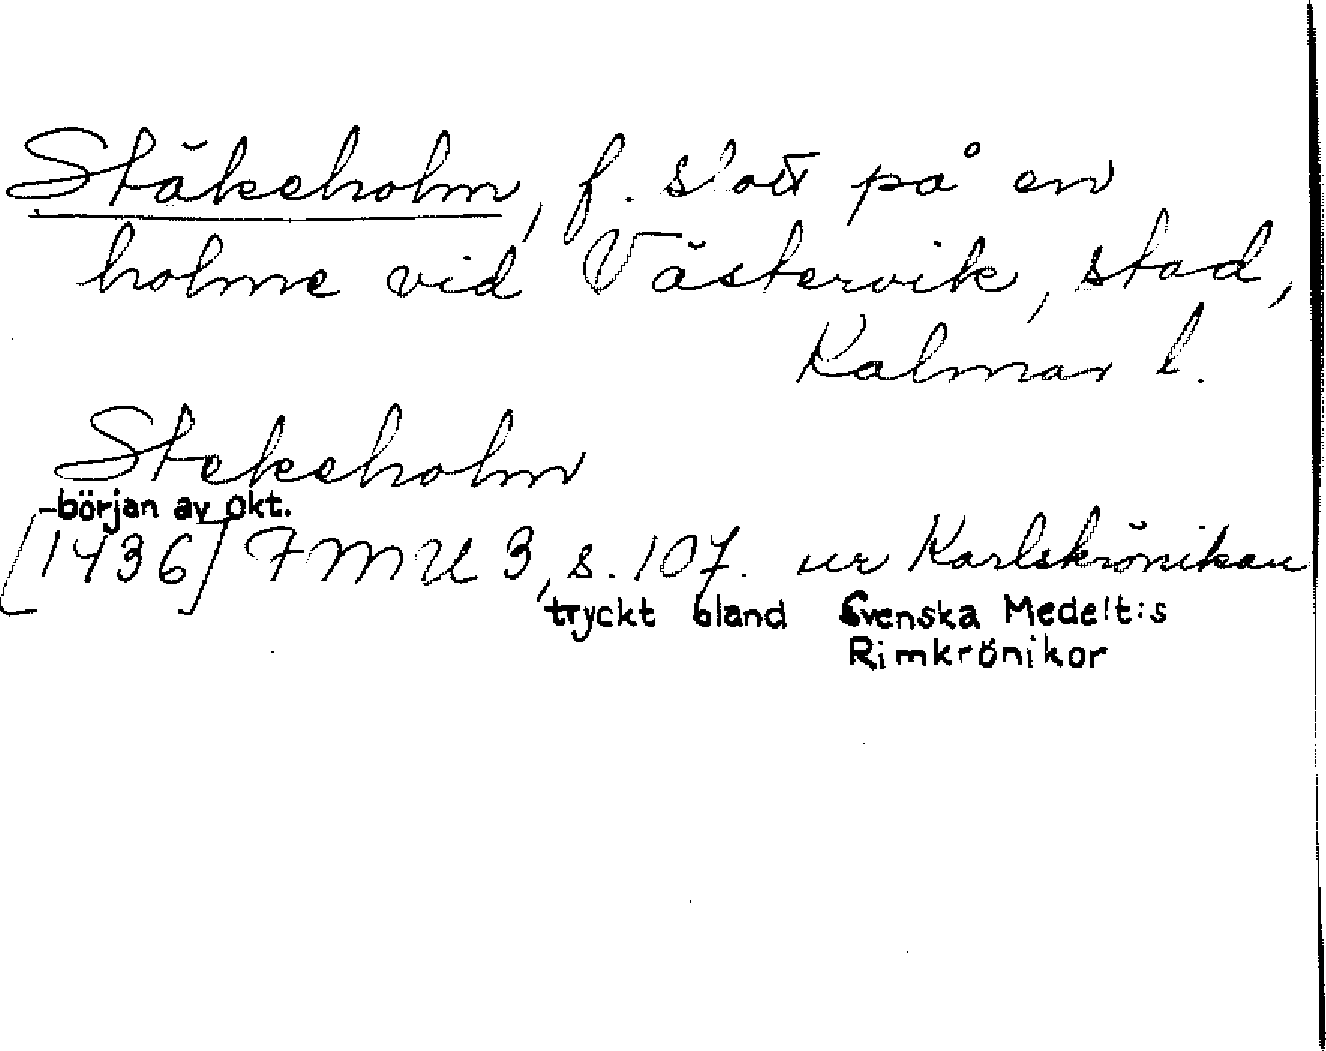 Stäkeholm, f. slott på en
holme vid Västervik, stad,
Kalmar l.
Stekeholm
-början av okt.
[1436] FMU 3, s. 107. ur Karlskrönikan
tryckt bland Svenska Medelt:s
Rimkrönikor